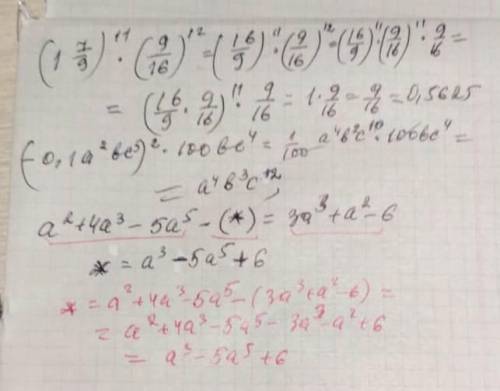 (1 7/9)^11 · (9/16)^12 = (16/9)^11 · (9/16)^12 = (16/9)^11 · (9/16)^11 · 9/16 =
= (16/9 · 9/16)^11 · 9/16 = 1 · 9/16 = 9/16 = 0,5625
(-0,1a²bc⁵)² · 100bc⁴ = 1/100 a⁴b²c¹⁰ · 100bc⁴ =
= a⁴b³c¹²,
a² + 4a³ - 5a⁵ - (*) = 3a³ + a² - 6
* = a³ - 5a⁵ + 6
* = a² + 4a³ - 5a⁵ - (3a³ + a² - 6) =
= a² + 4a³ - 5a⁵ - 3a³ - a² + 6
= a² - 5a⁵ + 6